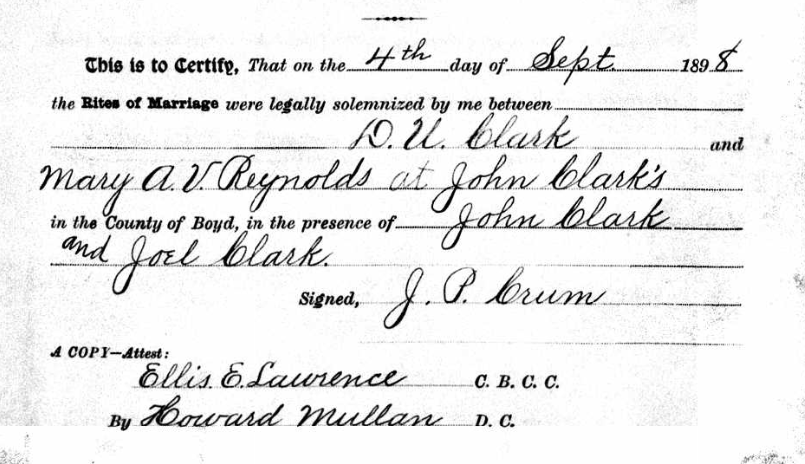 This is to Certify, That on the 4th day of Sept. 1898
the Rites of Marriage were legally solemnized by me between
D. U. Clark and
Mary A. V. Reynolds at John Clark's
in the County of Boyd, in the presence of John Clark
and Joel Clark.
Signed, J. P. Crum
A COPY—Attest:
Ellis E. Lawrence C. B. C. C.
By Howard Mullan D. C.